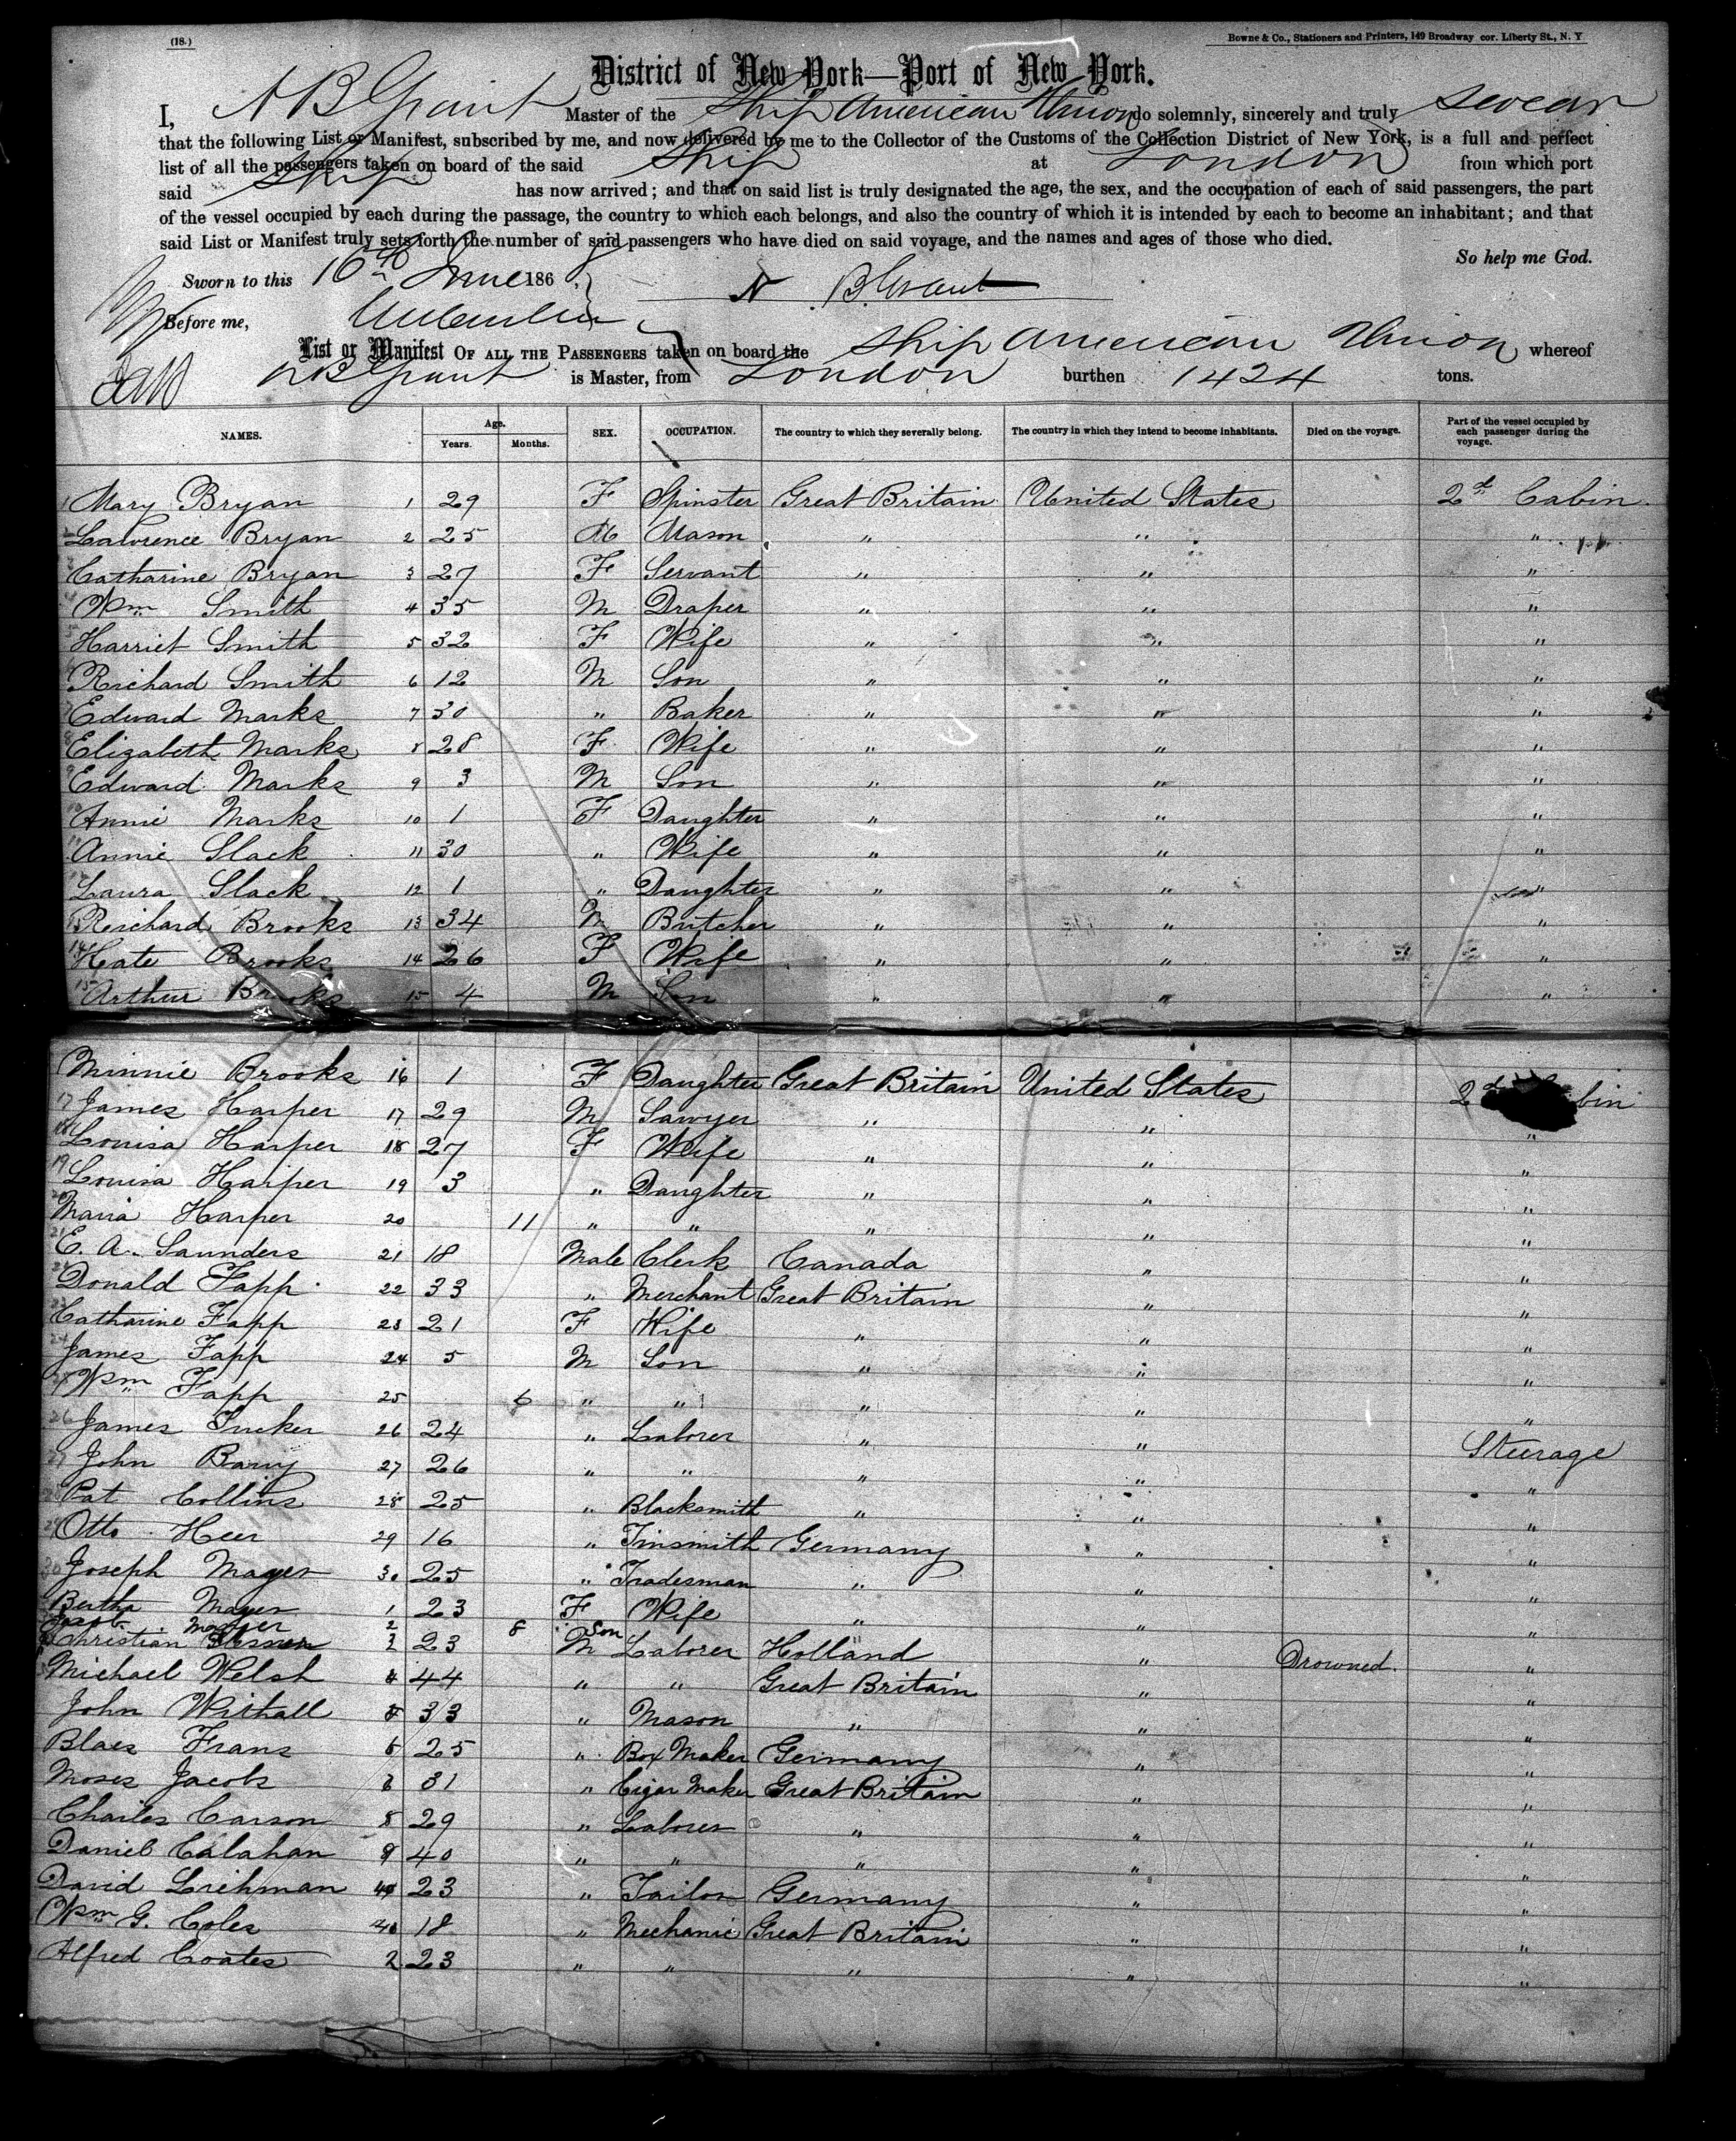 (18.)
Bowne & Co., Stationers and Printers, 149 Broadway cor. Liberty St., N. Y
District of New York—Port of New York.
I, N B Grant Master of the Ship American Union do solemnly, sincerely and truly swear
that the following List or Manifest, subscribed by me, and now delivered by me to the Collector of the Customs of the Collection District of New York, is a full and perfect
list of all the passengers taken on board of the said Ship at London from which port
said Ship has now arrived; and that on said list is truly designated the age, the sex, and the occupation of each of said passengers, the part
of the vessel occupied by each during the passage, the country to which each belongs, and also the country of which it is intended by each to become an inhabitant; and that
said List or Manifest truly sets forth the number of said passengers who have died on said voyage, and the names and ages of those who died.
So help me God.
Sworn to this 16th June 1868, N B Grant
Before me,
List or Manifest OF ALL THE PASSENGERS taken on board the Ship American Union whereof
N B Grant is Master, from London burthen 1424 tons.
NAMES. Age. Years. Months. SEX. OCCUPATION. The country to which they severally belong. The country in which they intend to become inhabitants. Died on the voyage. Part of the vessel occupied by each passenger during the voyage.
1 Mary Bryan 1 29 F Spinster Great Britain United States 2d Cabin
2 Lawrence Bryan 2 25 M Mason " " "
3 Catharine Bryan 3 27 F Servant " " "
4 Wm Smith 4 35 M Draper " " "
5 Harriet Smith 5 32 F Wife " " "
6 Richard Smith 6 12 M Son " " "
7 Edward Marks 7 30 " Baker " " "
8 Elizabeth Marks 8 28 F Wife " " "
9 Edward Marks 9 3 M Son " " "
10 Annie Marks 10 1 F Daughter " " "
11 Annie Slack 11 30 " Wife " " "
12 Laura Slack 12 1 " Daughter " " "
13 Reichard Brooks 13 34 M Butcher " " "
14 Kate Brooks 14 26 F Wife " " "
15 Arthur Brooks 15 4 M Son " " "
Minnie Brooks 16 1 F Daughter Great Britain United States 2d bin
17 James Harper 17 29 M Sawyer " " "
18 Louisa Harper 18 27 F Wife " " "
19 Louisa Harper 19 3 " Daughter " " "
20 Maria Harper 20 11 " " " " "
21 E. A. Saunders 21 18 Male Clerk Canada " "
22 Donald Fapp 22 33 " Merchant Great Britain " "
23 Catharine Fapp 23 21 F Wife " " "
24 James Fapp 24 5 M Son " " "
25 Wm Fapp 25 6 " " " " "
26 James Tucker 26 24 " Laborer " " Steerage
27 John Barry 27 26 " " " " "
28 Pat Collins 28 25 " Blacksmith " " "
29 Otto Heer 29 16 " Tinsmith Germany " "
30 Joseph Mayer 30 25 " Tradesman " " "
Bertha Mayer 1 23 F Wife " " "
Jacob Mayer 2 8 Son
Christian 23 M Laborer Holland " Drowned "
Michael Welsh 4 44 " " Great Britain " "
John Withall 33 " Mason " " "
Blaes Frans 25 " Box Maker Germany " "
Moses Jacobs 31 " Cigar Maker Great Britain " "
Charles Carson 8 29 " Laborer " " "
Daniel Calahan 9 40 " " " " "
David Liehman 40 23 " Tailor Germany " "
Wm G. Coles 18 " Mechanic Great Britain " "
Alfred Coates 2 23 " " " " "